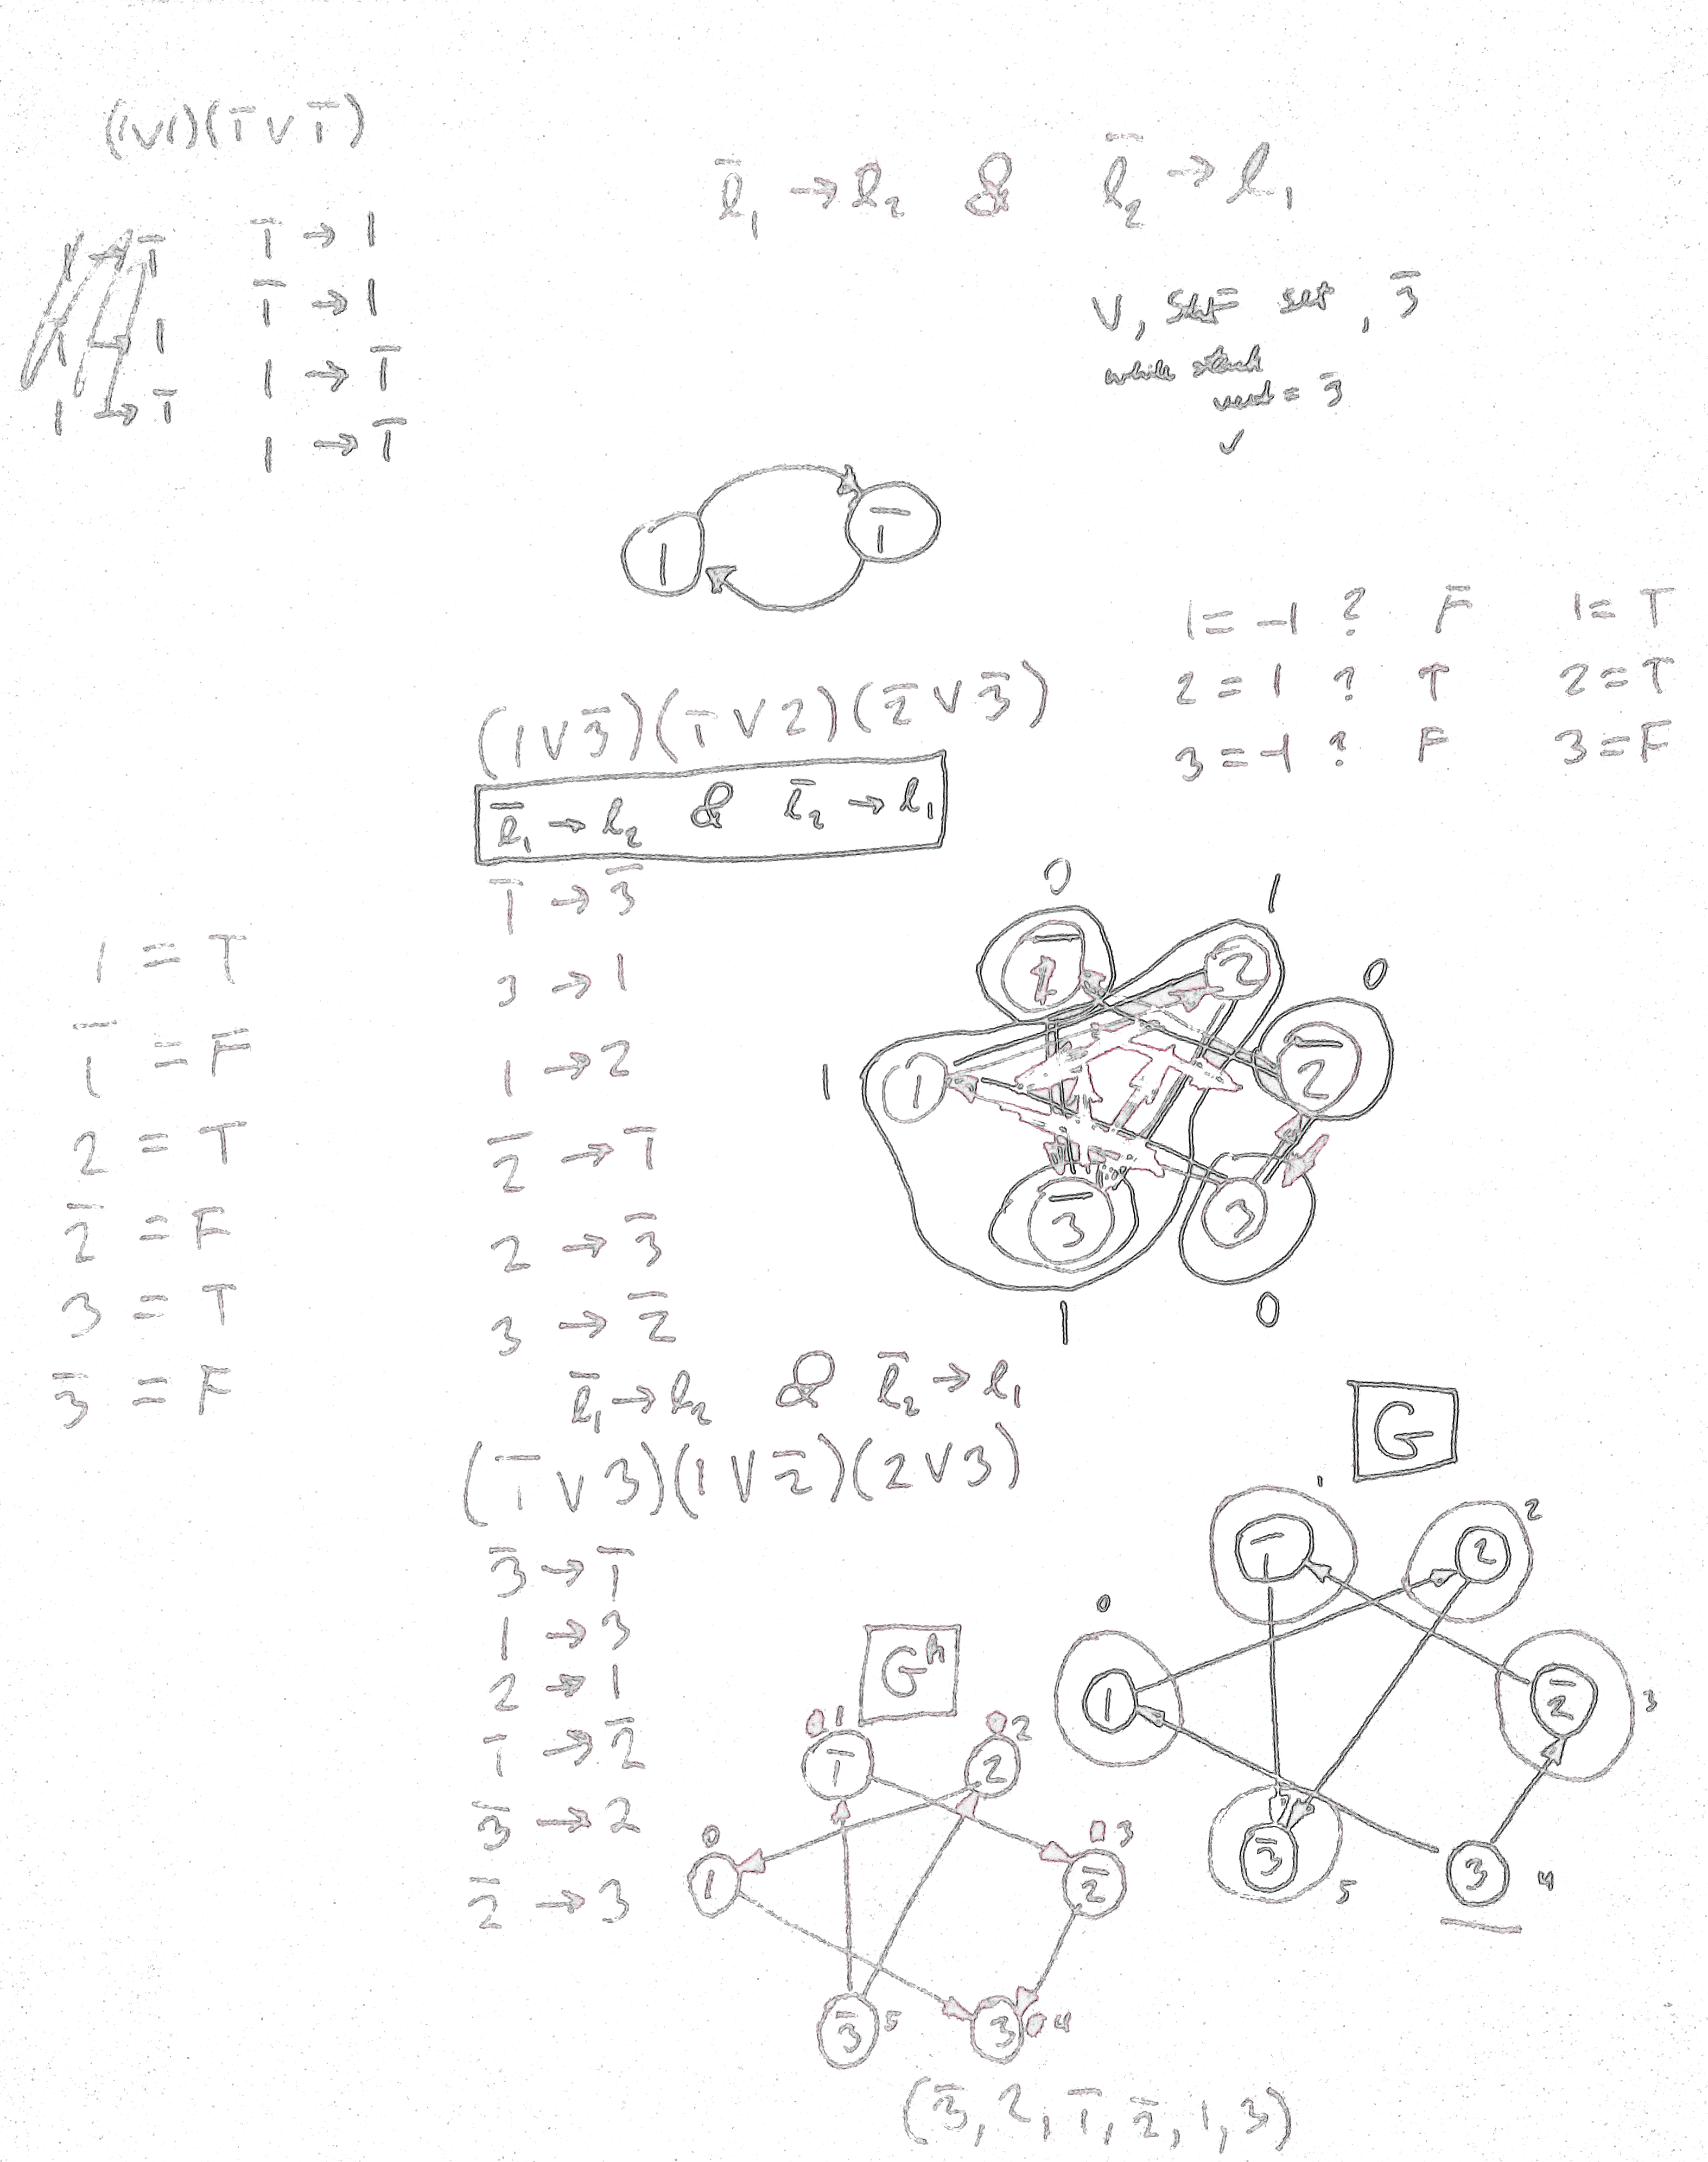 (1∨1)(1̅∨1̅)
l̅₁ → l₂ & l̅₂ → l₁
1̅ → 1
1̅ → 1
1 → 1̅
1 → 1̅
1̅
1
1 → 1̅
V, set, 3̅
while stack
vert = 3̅
✓
1
1̅
1 = -1 ? F 1 = T
2 = 1 ? T 2 = T
3 = -1 ? F 3 = F
(1∨3̅)(1̅∨2)(2̅∨3̅)
l̅₁ → l₂ & l̅₂ → l₁
1̅ → 3̅
3 → 1
1 → 2
2̅ → 1̅
2 → 3̅
3 → 2̅
1 = T
1̅ = F
2 = T
2̅ = F
3 = T
3̅ = F
0 1
1̅ 2 0
1 1 2̅
3̅ 3
1 0
l̅₁ → l₂ & l̅₂ → l₁
(1̅∨3)(1∨2̅)(2∨3)
3̅ → 1̅
1 → 3
2 → 1
1̅ → 2̅
3̅ → 2
2̅ → 3
G
1 2
1̅ 2
0
1 2̅ 3
3̅ 5 3 4
Gᴿ
1 2
1̅ 2
0 3
1 2̅
3̅ 5 3 4
(3̅, 2, 1̅, 2̅, 1, 3)